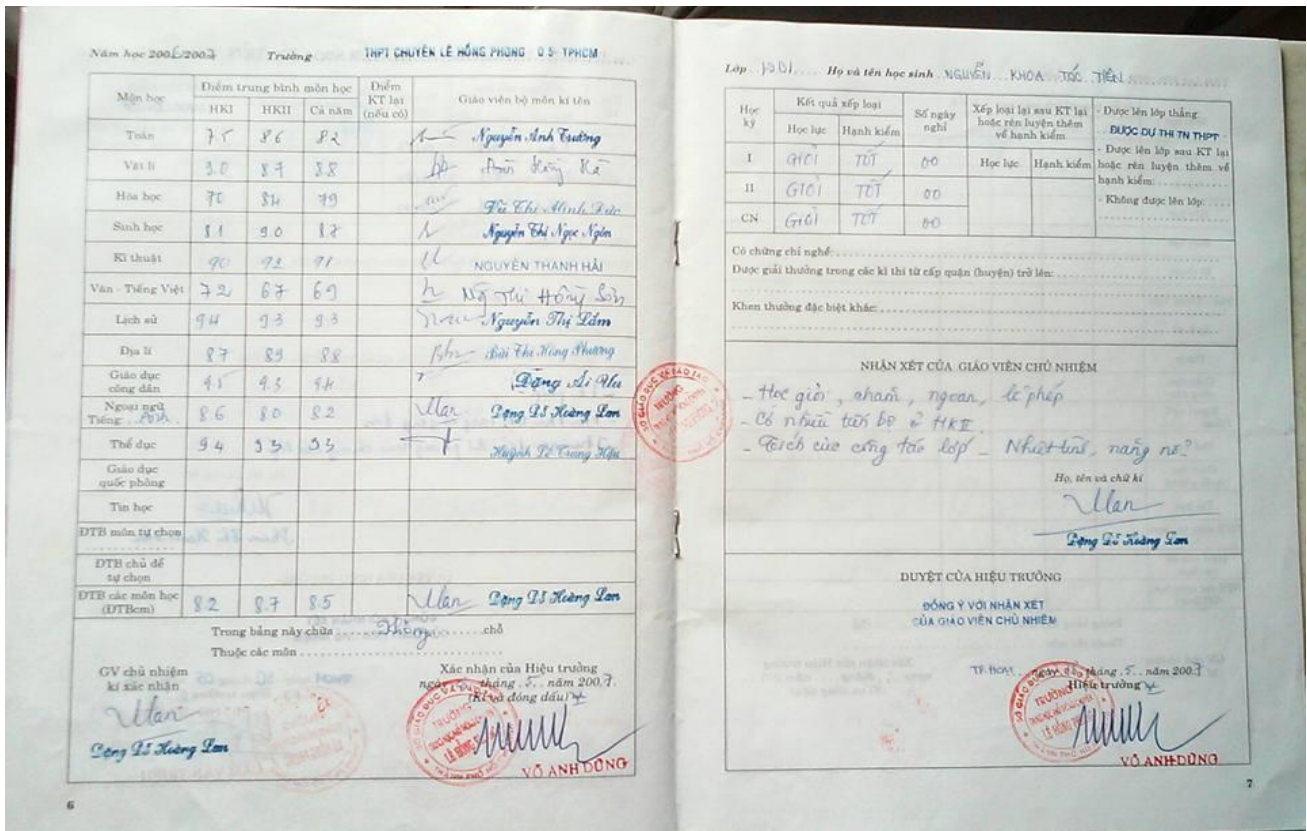 Năm học 2006/2007 Trường THPT CHUYÊN LÊ HỒNG PHONG Q 5- TPHCM
Môn học Điểm trung bình môn học Điểm KT lại (nếu có) Giáo viên bộ môn kí tên
HKI HKII Cả năm
Toán 75 86 82 Nguyễn Anh Trường
Vật lí 9.0 87 88
Hóa học 70 84 79 Vũ Thị Minh Đức
Sinh học 81 90 87 Nguyễn Thị Ngọc Ngôn
Kĩ thuật 90 92 91 NGUYỄN THANH HẢI
Văn - Tiếng Việt 72 67 69 Ng Thị Hồng Sơn
Lịch sử 94 93 93 Nguyễn Thị Lắm
Địa lí 87 89 88 Bùi Thị Hồng Phương
Giáo dục
công dân 9.5 9.3 94 Đặng Ái Vu
Ngoại ngữ
Tiếng: 86 80 82 Đặng Đỗ Hoàng Lan
Thể dục 94 93 93 Huỳnh Lê Trung Hậu
Giáo dục
quốc phòng
Tin học
ĐTB môn tự chọn
ĐTB chủ đề
tự chọn
ĐTB các môn học
(ĐTBcm) 8.2 8.7 8.5 Đặng Đỗ Hoàng Lan
Trong bảng này chữa Không chỗ
Thuộc các môn
GV chủ nhiệm
kí xác nhận
Đặng Đỗ Hoàng Lan
Xác nhận của Hiệu trưởng
ngày tháng 5 năm 2007
(Kí và đóng dấu)
VÕ ANH DŨNG
6
Lớp Họ và tên học sinh NGUYỄN KHOA TÓC TIÊN
Học kỳ Kết quả xếp loại Số ngày nghỉ Xếp loại lại sau KT lại hoặc rèn luyện thêm về hạnh kiểm
Học lực Hạnh kiểm Học lực Hạnh kiểm
I GIỎI TỐT 00
II GIỎI TỐT 00
CN GIỎI TỐT 00
- Được lên lớp thẳng
ĐƯỢC DỰ THI TN THPT
- Được lên lớp sau KT lại
hoặc rèn luyện thêm về
hạnh kiểm:
- Không được lên lớp:
Có chứng chỉ nghề:
Được giải thưởng trong các kì thi từ cấp quận (huyện) trở lên:
Khen thưởng đặc biệt khác:
NHẬN XÉT CỦA GIÁO VIÊN CHỦ NHIỆM
- Học giỏi, chăm, ngoan, lễ phép
- Có nhiều tiến bộ ở HKII
- Tích cực công tác lớp - Nhiệt tình, năng nổ
Họ, tên và chữ kí
Đặng Đỗ Hoàng Lan
DUYỆT CỦA HIỆU TRƯỞNG
ĐỒNG Ý VỚI NHẬN XÉT
CỦA GIÁO VIÊN CHỦ NHIỆM
TP.HCM, ngày tháng 5 năm 2007
Hiệu trưởng
VÕ ANH DŨNG
7